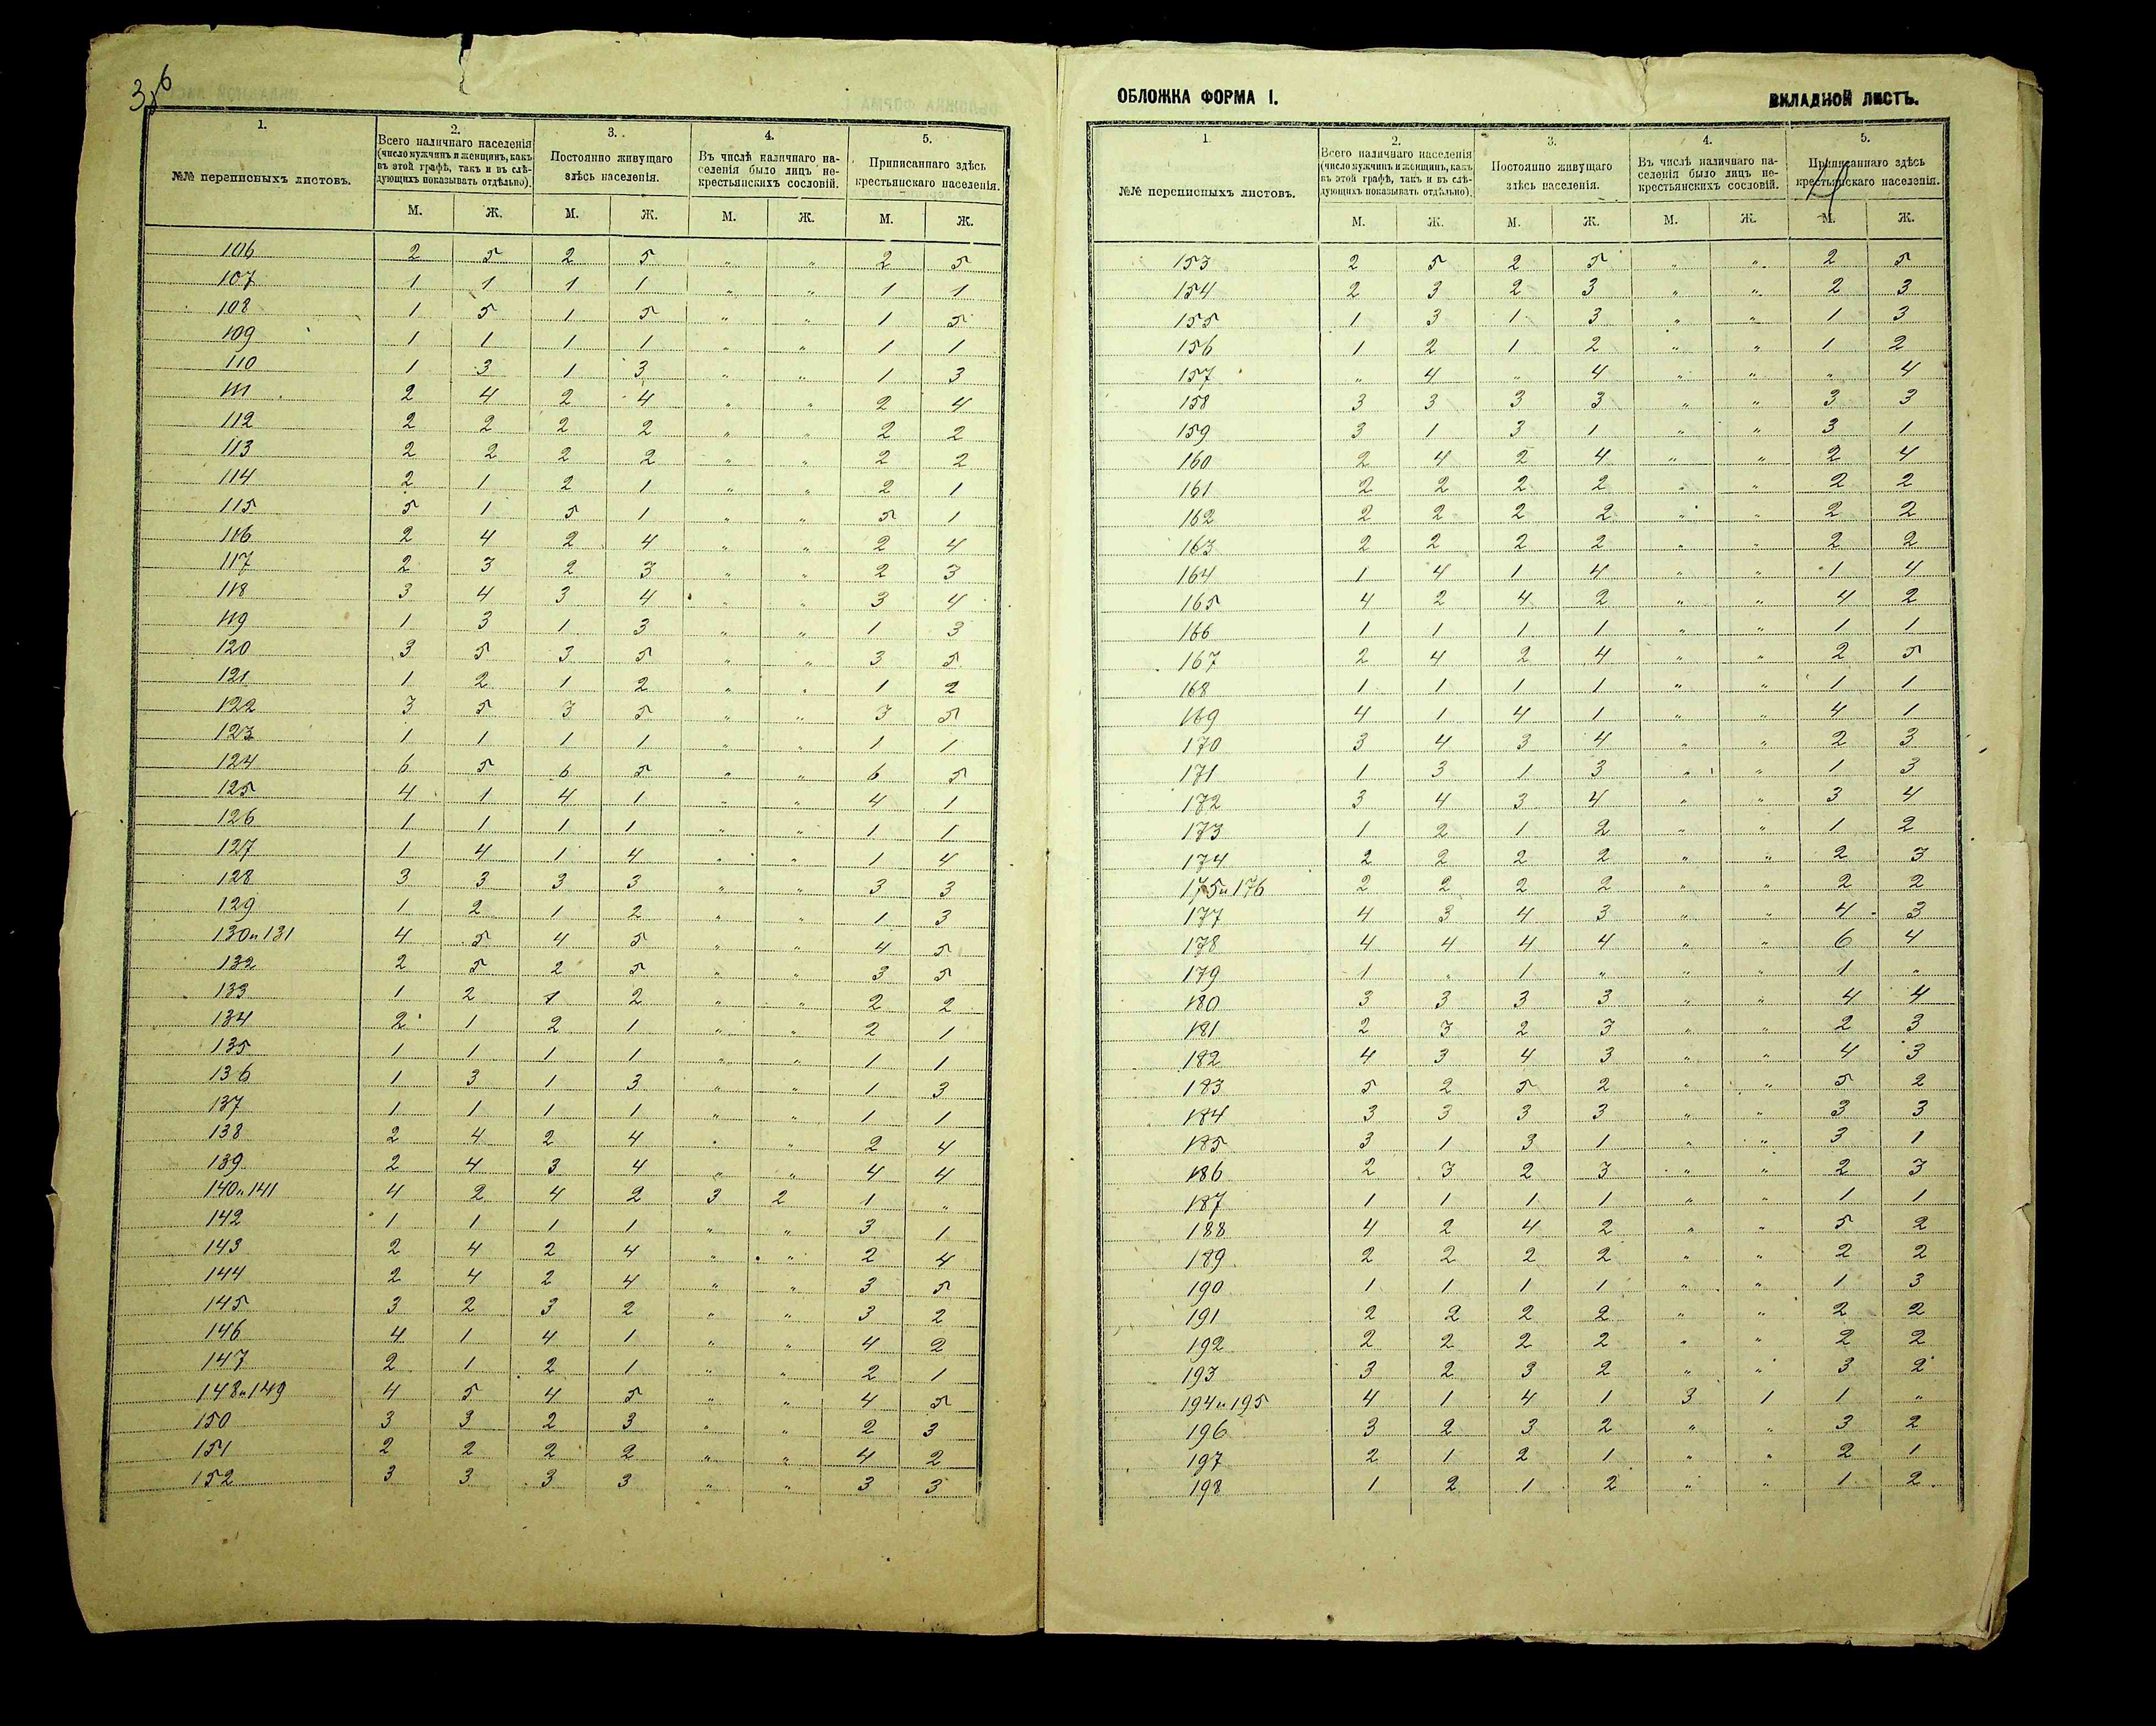 3 б
1. 2. 3. 4. 5.
№№ переписныхъ листовъ. Всего наличнаго населенія (число мужчинъ и женщинъ, какъ въ этой графѣ, такъ и въ слѣдующихъ показывать отдѣльно). Постоянно живущаго здѣсь населенія. Въ числѣ наличнаго населенія было лицъ некрестьянскихъ сословій. Приписаннаго здѣсь крестьянскаго населенія.
М. Ж. М. Ж. М. Ж. М. Ж.
106 2 5 2 5 " " 2 5
107 1 1 1 1 " " 1 1
108 1 5 1 5 " " 1 5
109 1 1 1 1 " " 1 1
110 1 3 1 3 " " 1 3
111 2 4 2 4 " " 2 4
112 2 2 2 2 " " 2 2
113 2 2 2 2 " " 2 2
114 2 1 2 1 " " 2 1
115 5 1 5 1 " " 5 1
116 2 4 2 4 " " 2 4
117 2 3 2 3 " " 2 3
118 3 4 3 4 " " 3 4
119 1 3 1 3 " " 1 3
120 3 5 3 5 " " 3 5
121 1 2 1 2 " " 1 2
122 3 5 3 5 " " 3 5
123 1 1 1 1 " " 1 1
124 6 5 6 5 " " 6 5
125 4 1 4 1 " " 4 1
126 1 1 1 1 " " 1 1
127 1 4 1 4 " " 1 4
128 3 3 3 3 " " 3 3
129 1 2 1 2 " " 1 3
130 и 131 4 5 4 5 " " 4 5
132 2 5 2 5 " " 3 5
133 1 2 1 2 " " 2 2
134 2 1 2 1 " " 2 1
135 1 1 1 1 " " 1 1
136 1 3 1 3 " " 1 3
137 1 1 1 1 " " 1 1
138 2 4 2 4 " " 2 4
139 2 4 3 4 " " 4 4
140 и 141 4 2 4 2 3 2 1 "
142 1 1 1 1 " " 3 1
143 2 4 2 4 " " 2 4
144 2 4 2 4 " " 3 5
145 3 2 3 2 " " 3 2
146 4 1 4 1 " " 4 2
147 2 1 2 1 " " 2 1
148 и 149 4 5 4 5 " " 4 5
150 3 3 2 3 " " 2 3
151 2 2 2 2 " " 4 2
152 3 3 3 3 " " 3 3
ОБЛОЖКА ФОРМА I. ВКЛАДНОЙ ЛИСТЪ.
1 2. 3. 4. 5.
№№ переписныхъ листовъ. Всего наличнаго населенія (число мужчинъ и женщинъ, какъ въ этой графѣ, такъ и въ слѣдующихъ показывать отдѣльно). Постоянно живущаго здѣсь населенія. Въ числѣ наличнаго населенія было лицъ некрестьянскихъ сословій. Приписаннаго здѣсь крестьянскаго населенія.
М. Ж. М. Ж. М. Ж. М. Ж.
153 2 5 2 5 " " 2 5
154 2 3 2 3 " " 2 3
155 1 3 1 3 " " 1 3
156 1 2 1 2 " " 1 2
157 " 4 " 4 " " " 4
158 3 3 3 3 " " 3 3
159 3 1 3 1 " " 3 1
160 2 4 2 4 " " 2 4
161 2 2 2 2 " " 2 2
162 2 2 2 2 " " 2 2
163 2 2 2 2 " " 2 2
164 1 4 1 4 " " 1 4
165 4 2 4 2 " " 4 2
166 1 1 1 1 " " 1 1
167 2 4 2 4 " " 2 5
168 1 1 1 1 " " 1 1
169 4 1 4 1 " " 4 1
170 3 4 3 4 " " 2 3
171 1 3 1 3 " " 1 3
172 3 4 3 4 " " 3 4
173 1 2 1 2 " " 1 2
174 2 2 2 2 " " 2 3
175 и 176 2 2 2 2 " " 2 2
177 4 3 4 3 " " 4 3
178 4 4 4 4 " " 6 4
179 1 " 1 " " " 1 "
180 3 3 3 3 " " 4 4
181 2 3 2 3 " " 2 3
182 4 3 4 3 " " 4 3
183 5 2 5 2 " " 5 2
184 3 3 3 3 " " 3 3
185 3 1 3 1 " " 3 1
186 2 3 2 3 " " 2 3
187 1 1 1 1 " " 1 1
188 4 2 4 2 " " 5 2
189 2 2 2 2 " " 2 2
190 1 1 1 1 " " 1 3
191 2 2 2 2 " " 2 2
192 2 2 2 2 " " 2 2
193 3 2 3 2 " " 3 2
194 и 195 4 1 4 1 3 1 1 "
196 3 2 3 2 " " 3 2
197 2 1 2 1 " " 2 1
198 1 2 1 2 " " 1 2.